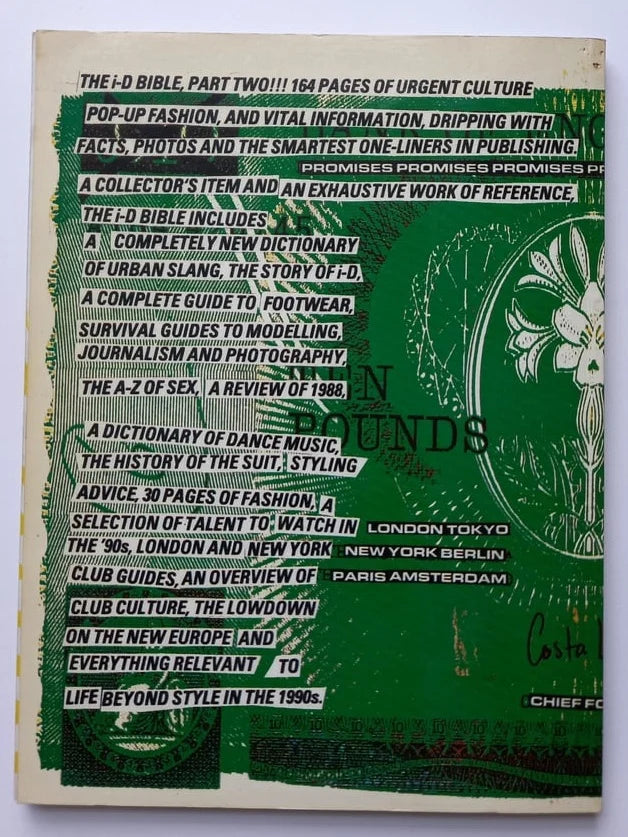 THE i-D BIBLE, PART TWO!!! 164 PAGES OF URGENT CULTURE
POP-UP FASHION, AND VITAL INFORMATION, DRIPPING WITH
FACTS, PHOTOS AND THE SMARTEST ONE-LINERS IN PUBLISHING.
PROMISES PROMISES PROMISES PR
A COLLECTOR'S ITEM AND AN EXHAUSTIVE WORK OF REFERENCE,
THE i-D BIBLE INCLUDES
A COMPLETELY NEW DICTIONARY
OF URBAN SLANG, THE STORY OF i-D,
A COMPLETE GUIDE TO FOOTWEAR,
SURVIVAL GUIDES TO MODELLING,
JOURNALISM AND PHOTOGRAPHY,
THE A-Z OF SEX, A REVIEW OF 1988,
POUNDS
A DICTIONARY OF DANCE MUSIC,
THE HISTORY OF THE SUIT, STYLING
ADVICE, 30 PAGES OF FASHION, A
SELECTION OF TALENT TO WATCH IN
LONDON TOKYO
THE '90s, LONDON AND NEW YORK
NEW YORK BERLIN
CLUB GUIDES, AN OVERVIEW OF
PARIS AMSTERDAM
CLUB CULTURE, THE LOWDOWN
ON THE NEW EUROPE AND
Costa
EVERYTHING RELEVANT TO
LIFE BEYOND STYLE IN THE 1990s.
CHIEF FO